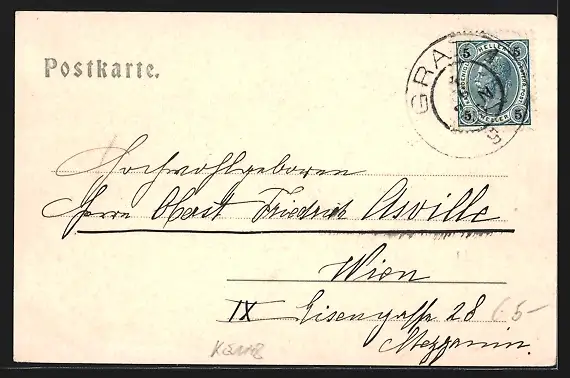 Postkarte.
GRAZ
5 HELLER 5
5 HELLER 5
Hochwohlgeboren
Herrn Oberst Friedrich Asville
Wien
IX Eisengasse 28
Mezzanin.
5-